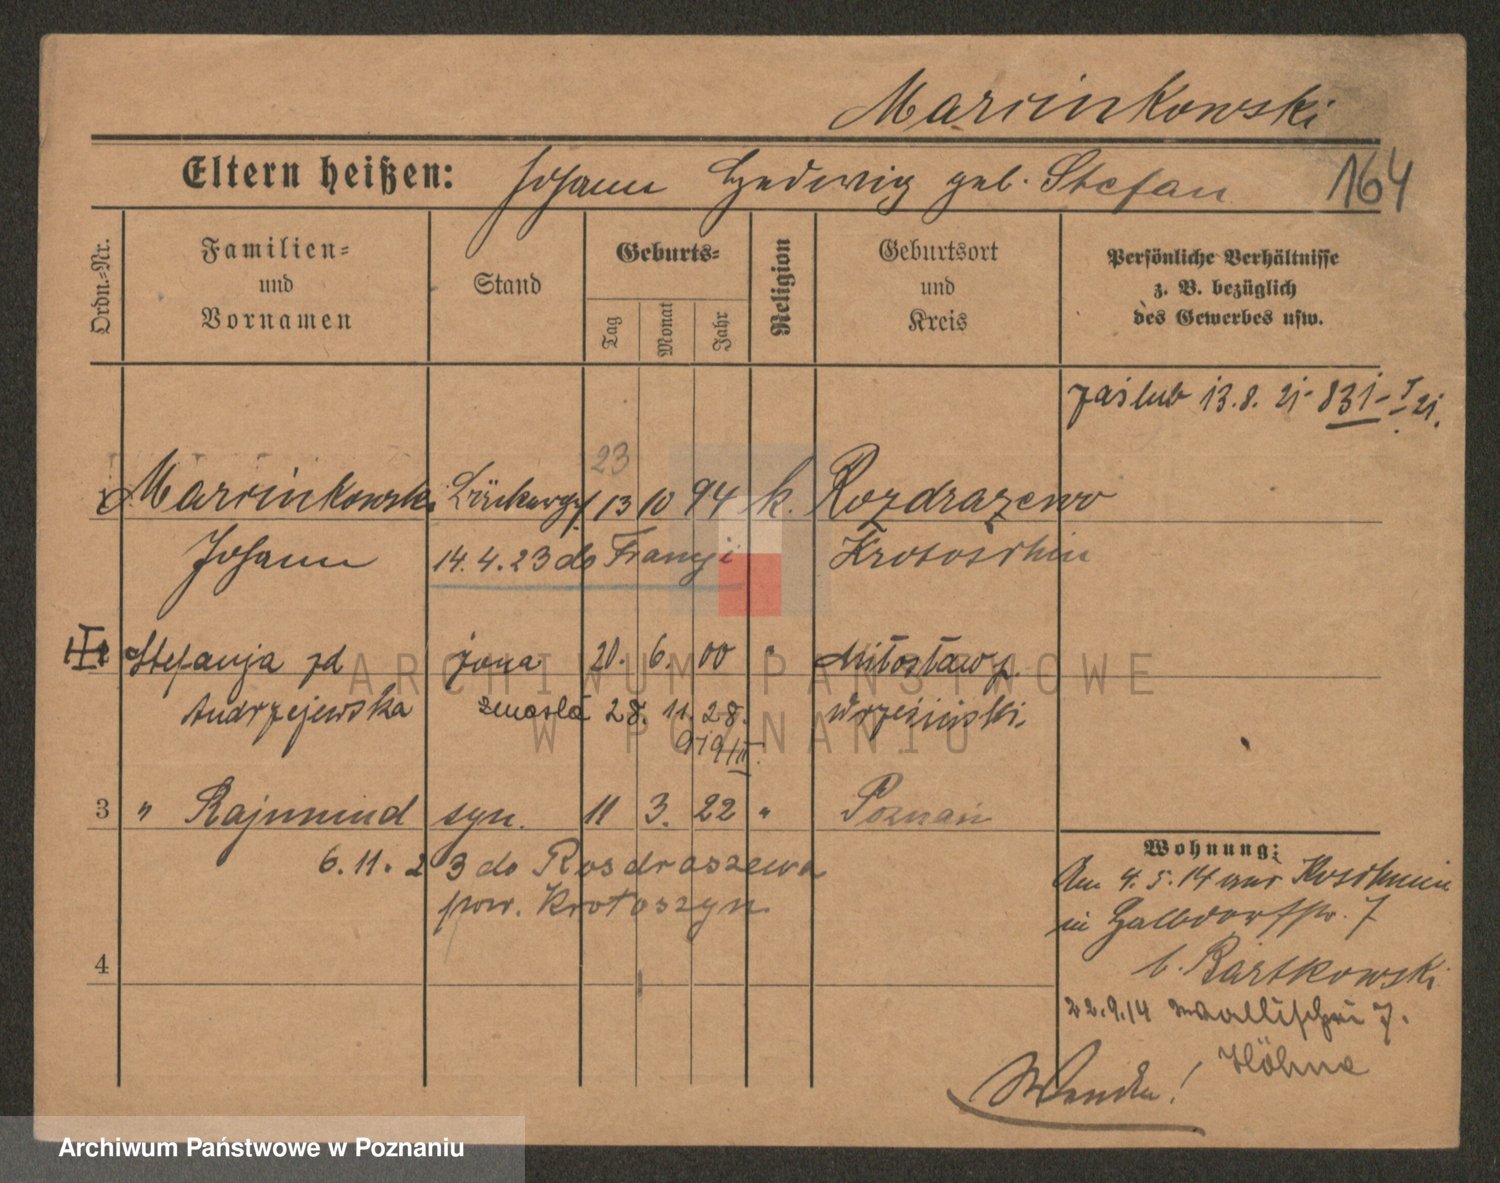 Marcinkowski
Eltern heißen: Johann Hedwig geb. Stefan
164
Ordn.-Nr.
Familien-
und
Vornamen
Stand
Geburts-
Tag
Monat
Jahr
Religion
Geburtsort
und
Kreis
Persönliche Verhältnisse
z. B. bezüglich
des Gewerbes usw.
zaślub 13.8. 21- 831-I-21.
23
Marcinkowski 13 10 94 k. Rozdrazewo
Johann 14.4.23 do Francji Krotoschin
Stefanja zd żona 20. 6. 00 " Miłosław p.
Andrzejewska zmarła 28. 11. 28. Wrzesiński
919/II.
3 " Rajmund syn. 11 3. 22 " Poznań
6.11.23 do Rosdraszewa
pow. Krotoszyn
4
Wohnung:
Am 4.5.14 aus Koschmin
in Halbdorfstr. 7
b. Bartkowski
22.9.14 Wallischei 7.
Höhne
Wenden!
ARCHIWUM PAŃSTWOWE
W POZNANIU
Archiwum Państwowe w Poznaniu